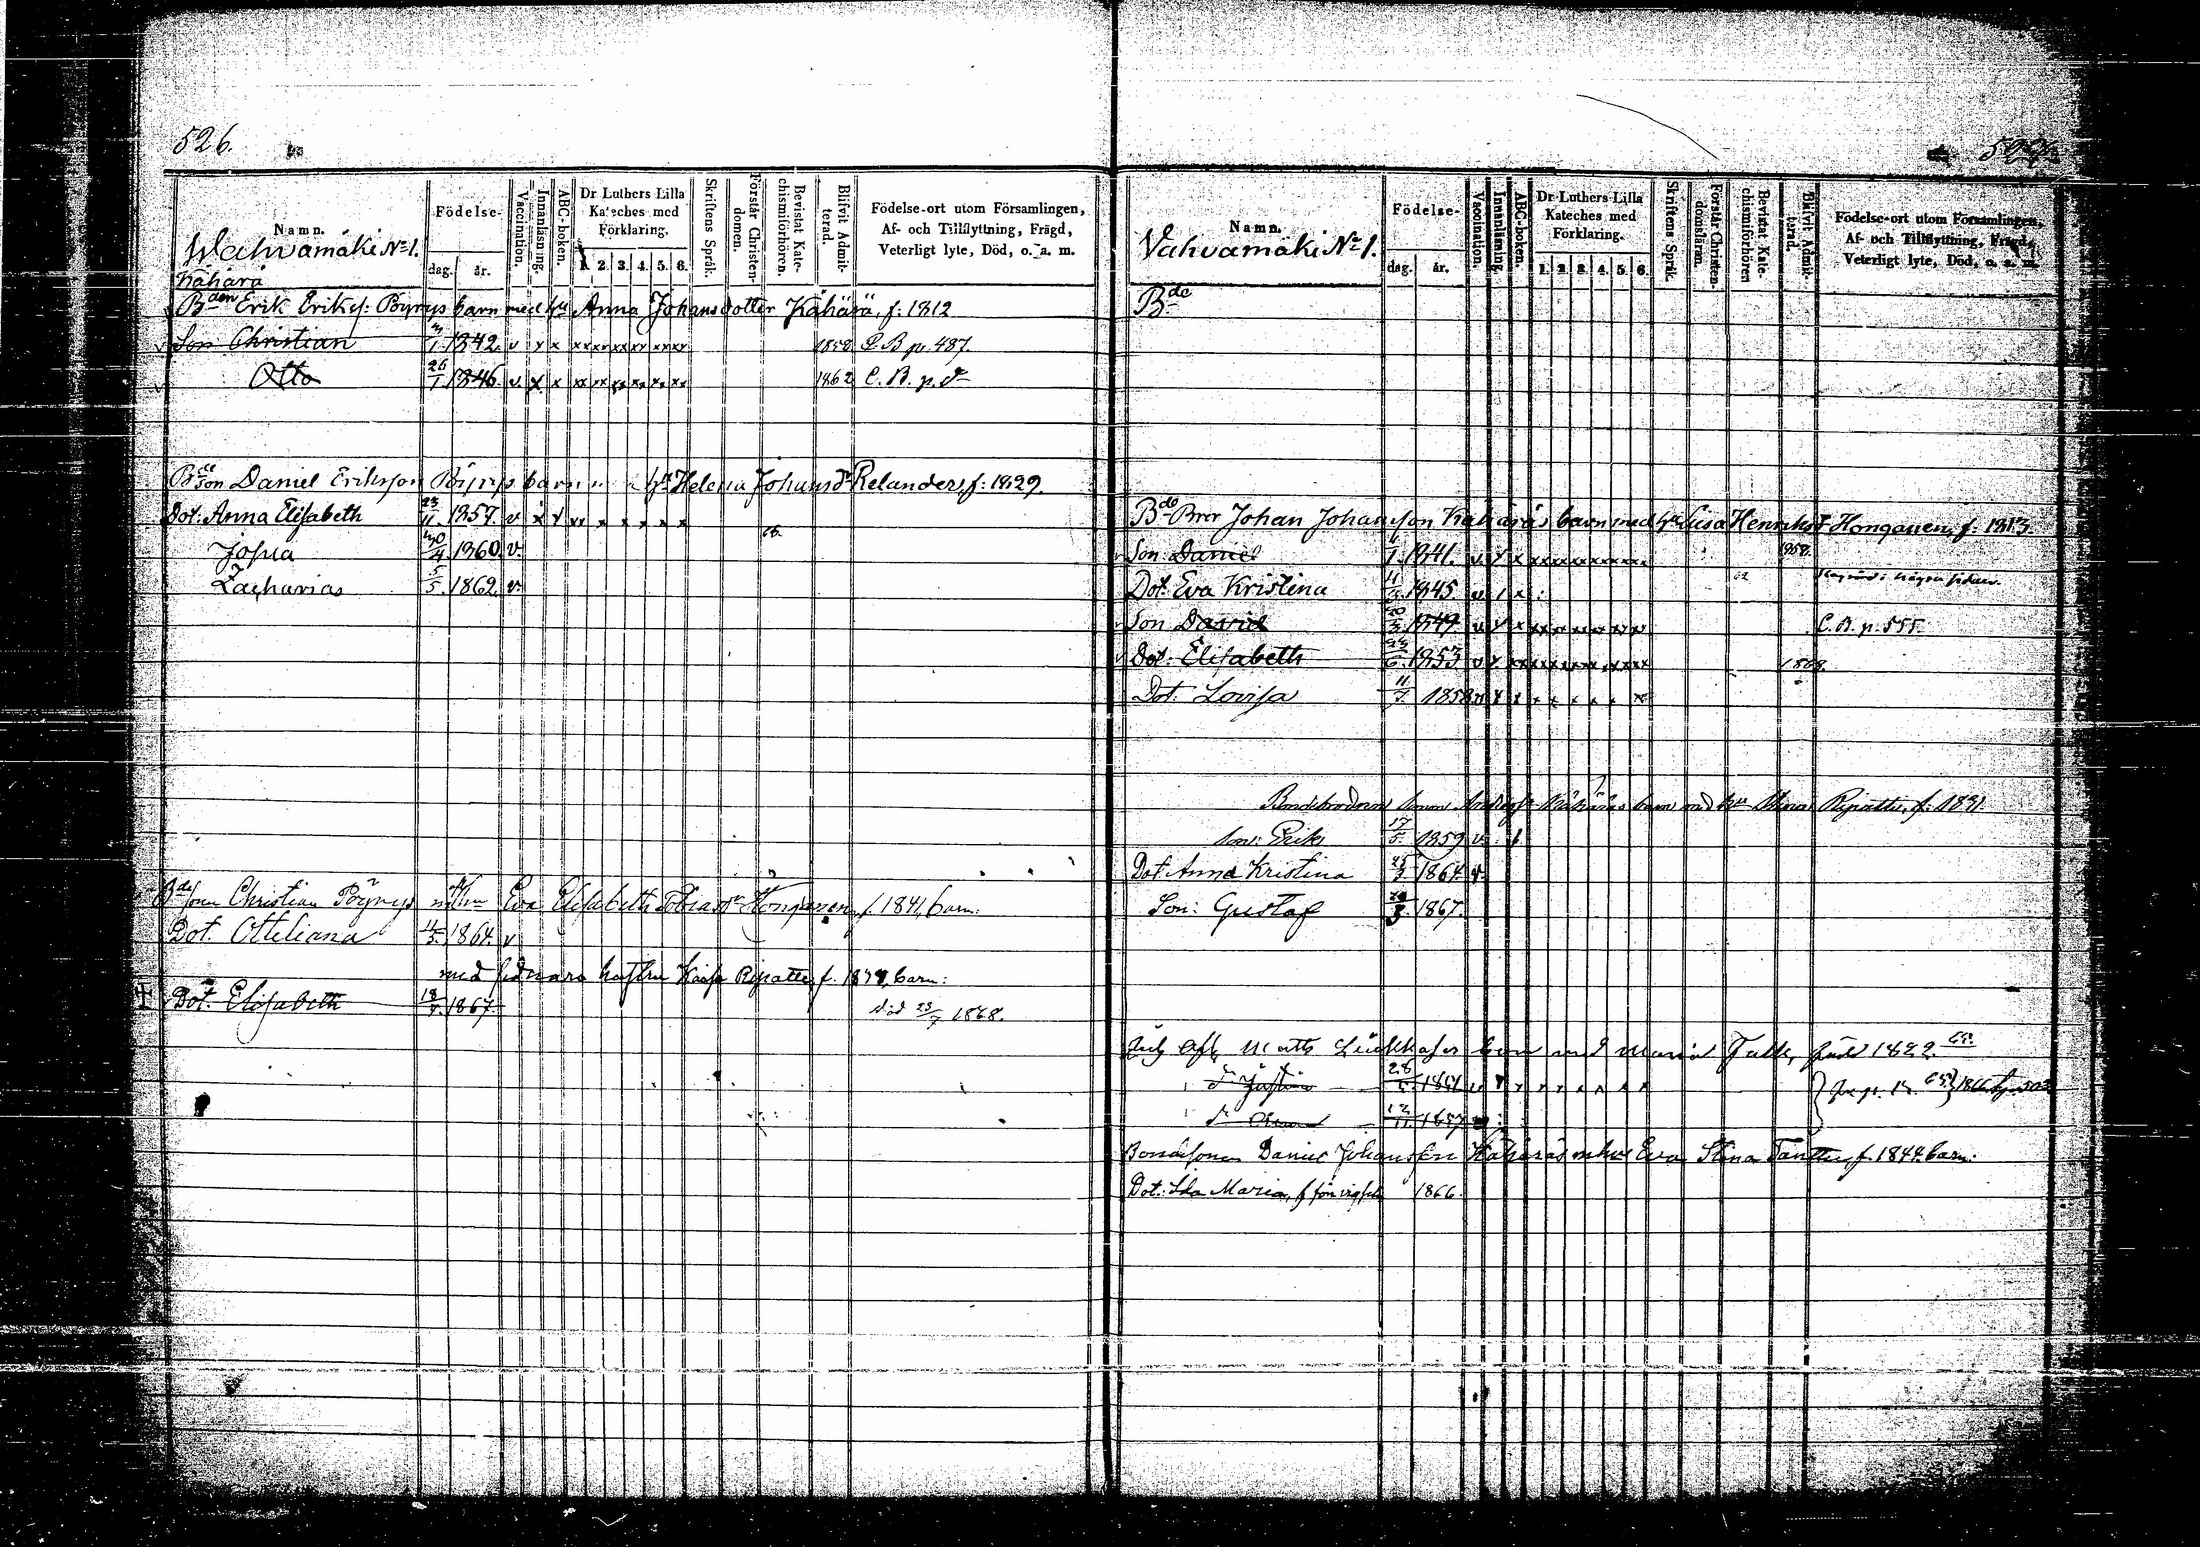 526.
Namn.
Födelse-
dag. år.
Vaccination.
Innanläsning.
ABC-boken.
Dr Luthers Lilla Kateches med Förklaring.
1. 2. 3. 4. 5. 6.
Skriftens Språk.
Förstår Christendomen.
Bevistat Katechismiförhören.
Blifvit Admitterad.
Födelse-ort utom Församlingen, Af- och Tillflyttning, Frägd, Veterligt lyte, Död, o. a. m.
Wahvamäki No 1.
Kähärä
Bden Erik Eriks: Pöyrys barn med hu Anna Johansdotter Kähärä, f: 1812
Son Christian 1842. v x x xx xx xx xx xx xx 1858 C. B. p. 487.
Otto 26/1 1846. v x x xx xx xx xx xx xx 1862 C. B. p. d
Bdeson Daniel Eriksson Pöyrys barn hu Helena Johansdr Relander, f: 1829.
Dot: Anna Elisabeth 23/11 1857. v x x xx x x x x x
Josua 30/4 1860. v.
Zacharias 5/5. 1862. v.
Bdesonen Christian Pöyrys m hu Eva Elisabeth Tobiasdr Honganen f. 1841, barn:
Dot. Otteliana 11/5. 1864. v
med sednare hustru Kaisa Ripatti, f. barn:
Dot. Elisabeth 18 1867. död 23/7 1868.
Namn.
Födelse-
dag. år.
Vaccination.
Innanläsning.
ABC-boken.
Dr Luthers Lilla Kateches med Förklaring.
1. 2. 3. 4. 5. 6.
Skriftens Språk.
Förstår Christendomsläran.
Bevistat Katechismiförhören
Blifvit Admitterad.
Födelse-ort utom Församlingen, Af- och Tillflyttning, Frägd, Veterligt lyte, Död, o. a. m.
Vahvamäki No 1.
Bde
Bde Bror Johan Johansson Kähäräs barn med hu Lisa Henriksd Honganen, f: 1813.
Son: Daniel 1841. v x x 1858.
Dot: Eva Kristina 11 1845 v x
Son David 1849 v x x C. B. p. 555.
Dot: Elisabeth 23/6 1853 v x 1868.
Dot. Lovisa 11/7. 1858 v x x x x x x x x
Kähäräs barn med hu Stina Ripatti, f: 1831
Son: Erik 17/5. 1859 v.
Dot Anna Kristina 25/3 1864. v.
Son: Gustaf 1867.
Matts barn med Maria Falk, född 1822.
Justina 28 v x x x x x x
12/11. 1857
Bondesonen Daniel Johansson Kähäräs m hu Eva Stina Tanttu, f. 1844. barn:
Dot: Ida Maria, f. för vigseln 1866.